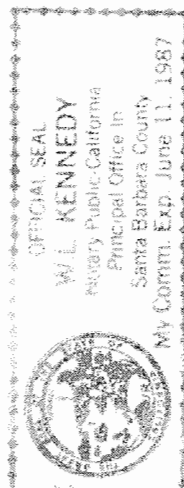 OFFICIAL SEAL
W. L. KENNEDY
Notary Public-California
Principal Office In
Santa Barbara County
My Comm. Exp. June 11, 1987